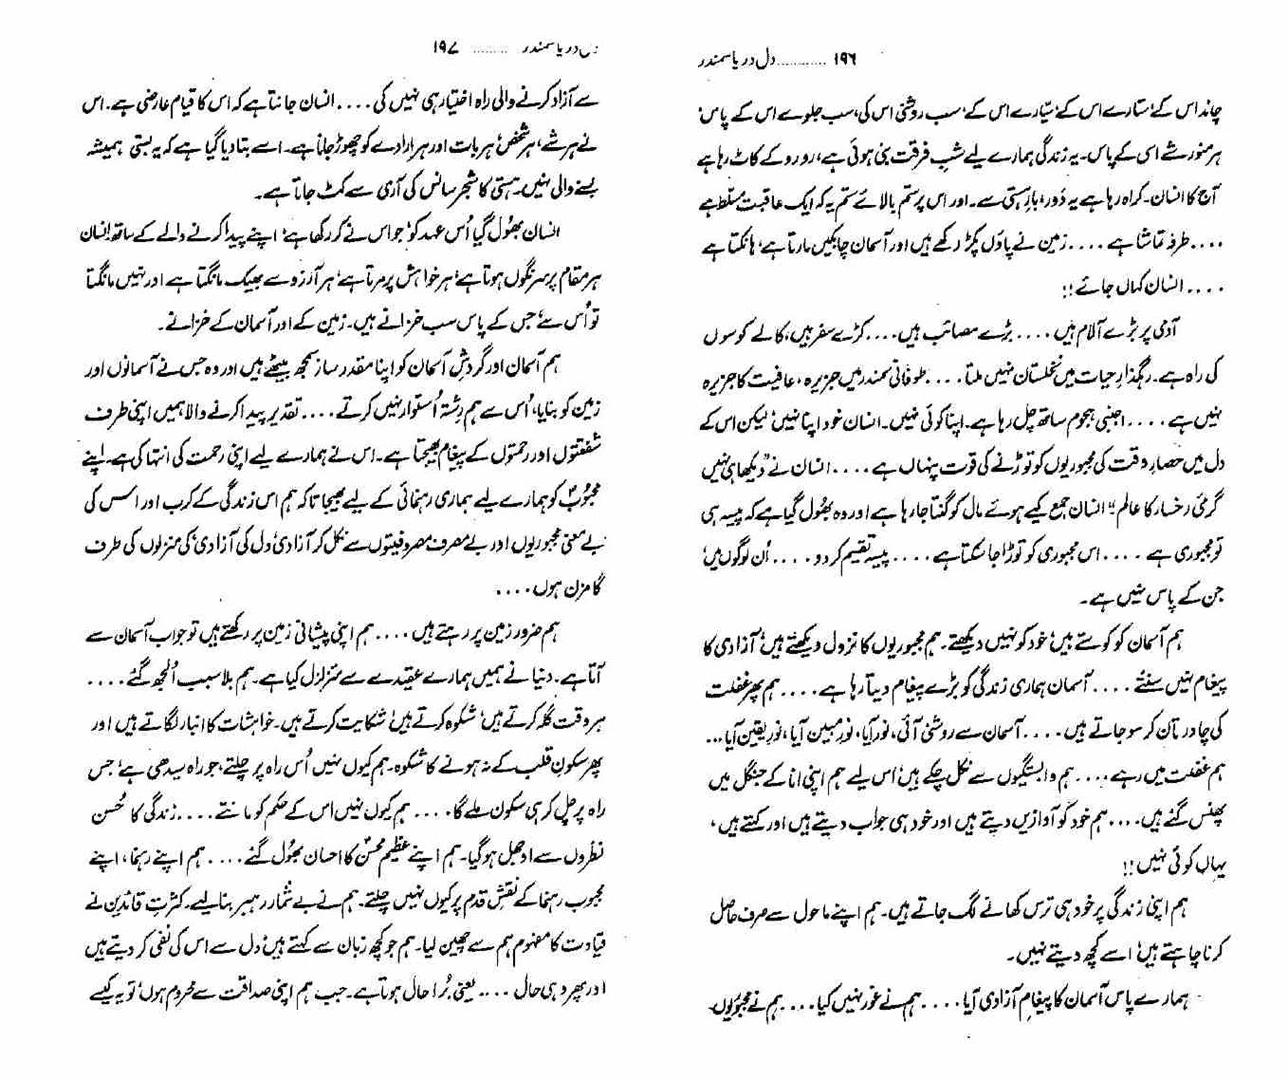 ۱۹۶ ............ دل دریا سمندر
چاند اس کے، ستارے اس کے، سیّارے اس کے، سب روشنی اس کی، سب جلوے اس کے پاس،
ہر منور شے اسی کے پاس۔ یہ زندگی ہمارے لیے شبِ فرقت بنی ہوئی ہے، رو رو کے کاٹ رہا ہے
آج کا انسان۔ کراہ رہا ہے یہ دَور، بارِ ہستی سے۔ اور اس پر ستم بالائے ستم یہ کہ ایک عاقبت مسلط ہے
.... طرفہ تماشا ہے .... زمین نے پاؤں پکڑ رکھے ہیں اور آسمان چابکیں مارتا ہے، ہانکتا ہے
.... انسان کہاں جائے!!
آدمی پر بڑے آلام ہیں .... بڑے مصائب ہیں .... کڑے سفر ہیں، کالے کوسوں
کی راہ ہے۔ رہگذارِ حیات میں نخلستان نہیں ملتا .... طوفانی سمندر میں جزیرہ، عافیت کا جزیرہ
نہیں ہے .... اجنبی ہجوم ساتھ چل رہا ہے۔ اپنا کوئی نہیں۔ انسان خود اپنا نہیں، لیکن اس کے
دل میں حصارِ وقت کی مجبوریوں کو توڑنے کی قوت پنہاں ہے .... انسان نے "دیکھا ہی نہیں
گرمئ رخسار کا عالم"، انسان جمع کیے ہوئے مال کو گنتا جا رہا ہے اور وہ بھُول گیا ہے کہ پیسہ ہی
تو مجبوری ہے .... اس مجبوری کو توڑا جا سکتا ہے .... پیسہ تقسیم کر دو .... اُن لوگوں میں،
جن کے پاس نہیں ہے۔
ہم آسمان کو کوستے ہیں، خود کو نہیں دیکھتے۔ ہم مجبوریوں کا نزول دیکھتے ہیں، آزادی کا
پیغام نہیں سنتے .... آسمان ہماری زندگی کو بڑے پیغام دیتا رہا ہے .... ہم پھر غفلت
کی چادر تان کر سو جاتے ہیں .... آسمان سے روشنی آئی، نور آیا، نورِ مبین آیا، نورِ یقین آیا ...
ہم غفلت میں رہے .... ہم وابستگیوں سے نکل چکے ہیں، اس لیے ہم اپنی انا کے جنگل میں
پھنس گئے ہیں .... ہم خود کو آوازیں دیتے ہیں اور خود ہی جواب دیتے ہیں اور کہتے ہیں،
یہاں کوئی نہیں!!
ہم اپنی زندگی پر خود ہی ترس کھانے لگ جاتے ہیں۔ ہم اپنے ماحول سے صرف حاصل
کرنا چاہتے ہیں، اسے کچھ دیتے نہیں۔
ہمارے پاس آسمان کا پیغامِ آزادی آیا .... ہم نے غور نہیں کیا .... ہم نے مجبوریوں
دل دریا سمندر ......... ۱۹۷
سے آزاد کرنے والی راہ اختیار ہی نہیں کی .... انسان جانتا ہے کہ اس کا قیام عارضی ہے۔ اس
نے ہر شے، ہر شخص، ہر بات اور ہر ارادے کو چھوڑ جانا ہے۔ اسے بتا دیا گیا ہے کہ یہ بستی ہمیشہ
بسنے والی نہیں۔ ہستی کا شجر سانس کی آری سے کٹ جاتا ہے۔
انسان بھُول گیا اُس عہد کو، جو اس نے کر رکھا ہے، اپنے پیدا کرنے والے کے ساتھ۔ انسان
ہر مقام پر سرنگوں ہوتا ہے، ہر خواہش پر مرتا ہے، ہر آرزو سے بھیک مانگتا ہے اور نہیں مانگتا
تو اُس سے، جس کے پاس سب خزانے ہیں۔ زمین کے اور آسمان کے خزانے۔
ہم آسمان اور گردشِ آسمان کو اپنا مقدر ساز سمجھ بیٹھے ہیں اور وہ جس نے آسمانوں اور
زمین کو بنایا، اُس سے ہم رشتہ اُستوار نہیں کرتے .... تقدیر پیدا کرنے والا ہمیں اپنی طرف
شفقتوں اور رحمتوں کے پیغام بھیجتا ہے۔ اس نے ہمارے لیے اپنی رحمت کی انتہا کی ہے۔ اپنے
محبُوبؐ کو ہمارے لیے ہماری رہنمائی کے لیے بھیجا تاکہ ہم اس زندگی کے کرب اور اس کی
بے معنی مجبوریوں اور بے مصرف مصروفیتوں سے نکل کر آزادئ دل کی آزادی، کی منزلوں کی طرف
گامزن ہوں ....
ہم ضرور زمین پر رہتے ہیں .... ہم اپنی پیشانی زمین پر رکھتے ہیں تو جواب آسمان سے
آتا ہے۔ دنیا نے ہمیں ہمارے عقیدے سے متزلزل کیا ہے۔ ہم بلا سبب اُلجھ گئے ....
ہر وقت گلہ کرتے ہیں، شکوہ کرتے ہیں، شکایت کرتے ہیں۔ خواہشات کا انبار لگاتے ہیں اور
پھر سکونِ قلب کے نہ ہونے کا شکوہ۔ ہم کیوں نہیں اُس راہ پر چلتے، جو راہ سیدھی ہے، جس
راہ پر چل کر ہی سکون ملے گا .... ہم کیوں نہیں اس کے حکم کو مانتے .... زندگی کا حُسن
نظروں سے اوجھل ہو گیا۔ ہم اپنے عظیم محسنؐ کا احسان بھُول گئے .... ہم اپنے رہنما، اپنے
محبوب رہنما کے نقشِ قدم پر کیوں نہیں چلتے۔ ہم نے بے شمار رہبر بنا لیے۔ کثرتِ قائدین نے
قیادت کا مفہوم ہم سے چھین لیا۔ ہم جو کچھ زبان سے کہتے ہیں، دل سے اس کی نفی کر دیتے ہیں
اور پھر وہی حال .... یعنی بُرا حال ہوتا ہے۔ جب ہم اپنی صداقت سے محروم ہوں، تو یہ کیسے